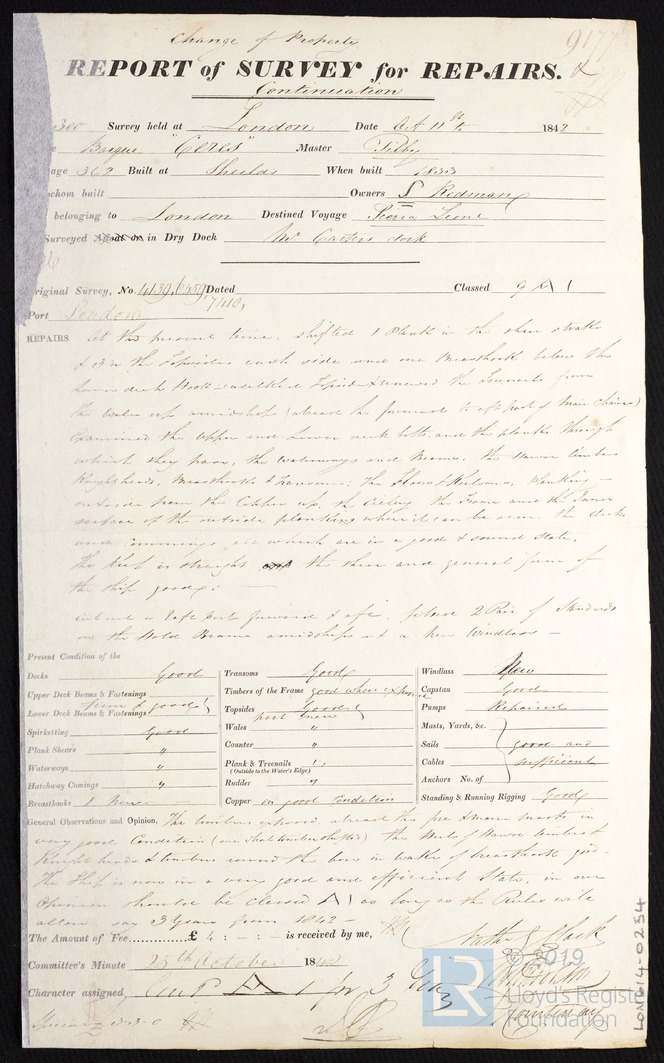 Change of Property
9177
REPORT of SURVEY for REPAIRS.
Continuation
300 Survey held at London Date Oct 11th 1842
Barque "Ceres" Master
age 362 Built at Sheilds When built 1833
whom built Owners S Redman
belonging to London Destined Voyage Sierra Leone
Surveyed Afloat or in Dry Dock Mr Carters dock
Original Survey, No. 4139, 6459, Dated Classed 9 A 1
7410,
Port London
REPAIRS At the present time, shifted 1 Plank in the sheer strake
& 3 in the Topsides each side and one Breasthook below the
Lower deck Hook caulked Topsides & renewed the Treenails from
the Wales up amidships (abreast the foremast to aft part of Main Chains)
Examined the Upper and Lower deck bolts, and the planks through
which they pass, the waterways and Beams, the Hawse timbers
Knightheads, Breasthooks & Transoms; the Floors & Keelsons, Planking
outside from the Copper up, the Ceiling, the Frame and the Inner
surface of the outside planking where it can be seen the decks
and commings all which are in a good & sound state.
The Keel is straight the sheer and general form of
the ship good:
forward & aft. placed 2 Pair of Standards
on the Hold Beams amidships and a New Windlass
Present Condition of the
Decks Good
Upper Deck Beams & Fastenings
Lower Deck Beams & Fastenings good
Spirketting Good
Plank Shears "
Waterways "
Hatchway Comings "
Breasthooks 1 New
Transoms Good
Timbers of the Frame good where exposed
Topsides Good &
part new
Wales "
Counter "
Plank & Treenails "
(Outside to the Water's Edge)
Rudder "
Copper in good Condition
Windlass New
Capstan Good
Pumps Repaired
Masts, Yards, &c.
Sails good and
Cables sufficient
Anchors No. of
Standing & Running Rigging Good
General Observations and Opinion, The timbers exposed abreast the fore & main masts in
very good Condition (one that timber shifted) the Heels of Hawse timbers &
Knight heads & timbers round the bow in wake of breasthook good.
The Ship is now in a very good and efficient State, in our
Opinion should be Classed A 1 as long as the Rules will
allow say 3 Years from 1842 -
The Amount of Fee............£ 4 : - : - is received by me,
Committee's Minute 25th October 1842
Character assigned, A 1 for 3 Yrs
LON614-0234
LR
© 2019
Lloyd's Register
Foundation